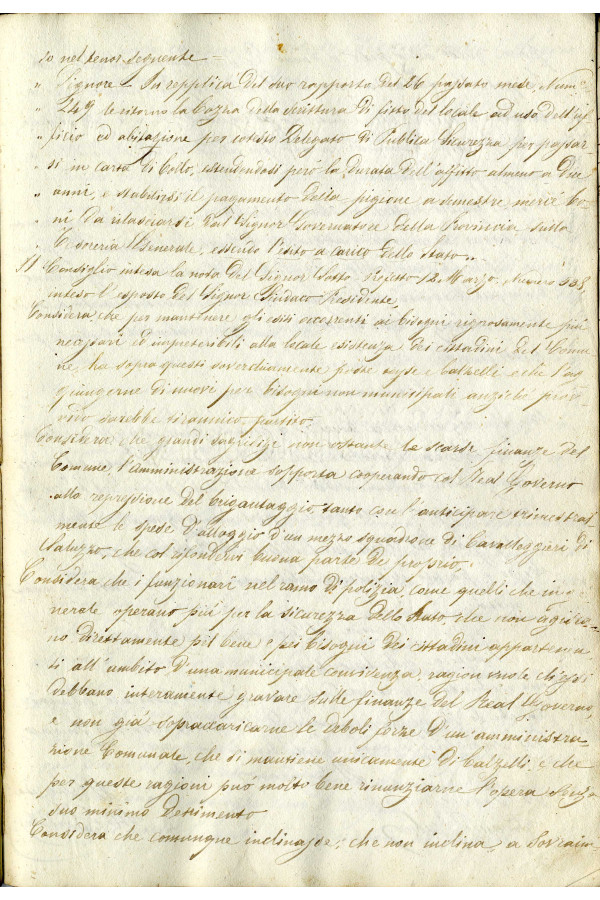 do nel tenor seguente =
" Signore - In replica del suo rapporto del 26 passato mese, Num.°
" 249 le ritorno la bozza della scrittura di fitto del locale ad uso dell'uf
" ficio ed abitazione per cotesto Delegato di Publica Sicurezza, per passar
" si in carta di bollo, estendendosi però la durata dell'affitto almeno a due
" anni, e stabilirsi il pagamento della pigione a semestre mercè bo-
" ni da rilasciarsi dal Signor Governatore della Provincia sulla
" Tesoreria Generale, essendo l'esito a carico dello Stato „
Il Consiglio intesa la nota del Signor Sotto Prefetto 12 Marzo, Numero
inteso l'esposto del Signor Sindaco Presidente
Considera che per mantenere gli esiti occorrenti ai bisogni rigorosamente più
necessari ed impreteribili alla locale esistenza dei cittadini del Comu
ne, ha sopra questi soverchiamente poste tasse e balzelli e che l'ag
giungerne di nuovi per bisogni non municipali anzichè prov
vido sarebbe tirannico partito
Considera che grandi sagrifizi non ostante le scarse finanze del
Comune l'amministrazione sopporta cooperando col Real Governo
alla repressione del brigantaggio tanto con l'anticipare trimestral
mente le spese d'alloggio d'un mezzo squadrone di Cavalleggieri di
Saluzzo, che col rifondervi buona parte de proprio.
Considera che i funzionari nel ramo di polizia, come quelli che in ge
nerale operano più per la sicurezza dello Stato, che non agisca
no direttamente pel bene e pei bisogni dei cittadini appartenen
ti all'ambito d'una municipale convivenza, ragion vuole ch'essi
debbano interamente gravare sulle finanze del Real Governo,
e non già sopraccaricarne le deboli forze d'un'amministra
zione Comunale, che si mantiene unicamente di balzelli, e che
per queste ragioni può molto bene rinunziarne l'opera senza
suo minimo detrimento
Considera che comunque inclinasse, che non inclina, a